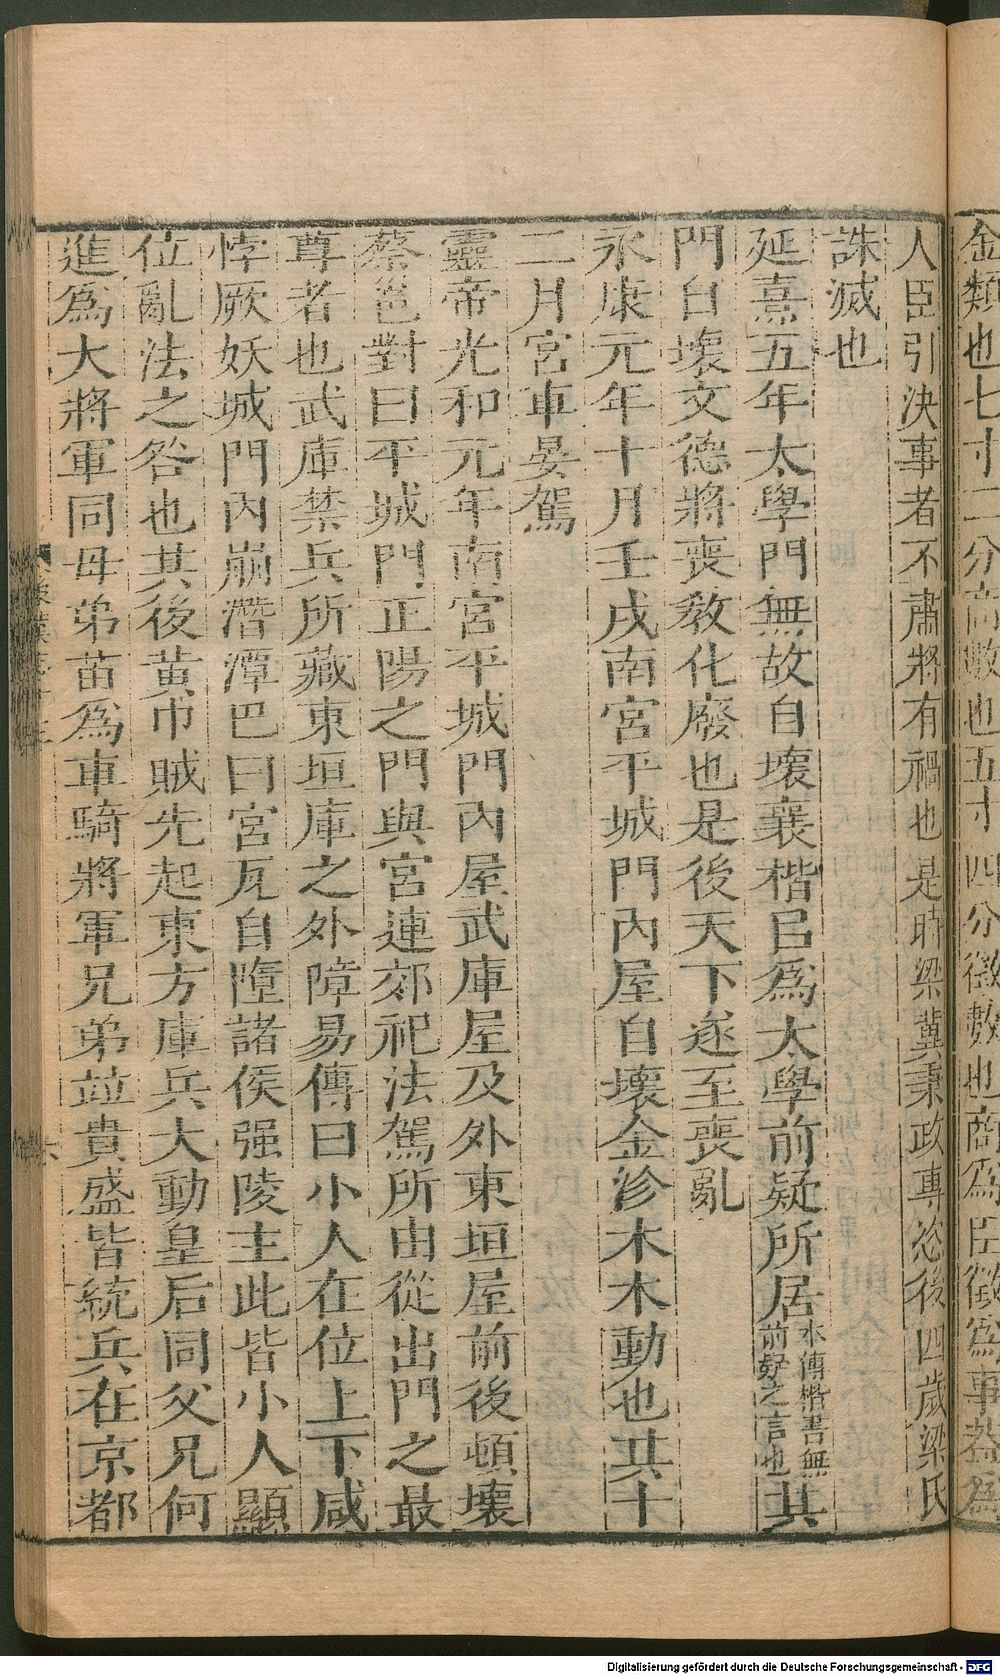 金類也七寸二分商數也五寸四分徵數也商爲臣徵爲事蓋爲
人臣引決事者不肅將有禍也是時梁冀秉政專恣後四歲梁氏
誅滅也
延熹五年太學門無故自壞襄楷㠯爲太學前疑所居本傳楷書無前疑之言也其
門自壞文德將喪教化廢也是後天下遂至喪亂
永康元年十月壬戌南宮平城門內屋自壞金沴木木動也其十
二月宮車晏駕
靈帝光和元年南宮平城門內屋武庫屋及外東垣屋前後頓壞
蔡邕對曰平城門正陽之門與宮連郊祀法駕所由從出門之最
尊者也武庫禁兵所藏東垣庫之外障易傳曰小人在位上下咸
悖厥妖城門內崩潛潭巴曰宮瓦自墮諸侯强陵主此皆小人顯
位亂法之咎也其後黃巾賊先起東方庫兵大動皇后同父兄何
進爲大將軍同母弟苗爲車騎將軍兄弟竝貴盛皆統兵在京都
六
Digitalisierung gefördert durch die Deutsche Forschungsgemeinschaft - DFG